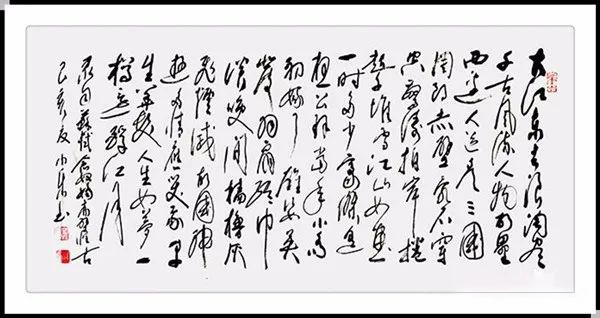 大江东去浪淘尽
千古风流人物故垒
西边人道是三国
周郎赤壁乱石穿
空惊涛拍岸卷
堆雪江山如画
一时多少豪杰遥
想公瑾当年小乔
初嫁了雄姿英
发羽扇纶巾
谈笑间樯橹灰
飞烟灭故国神
游多情应笑我早
生华发人生如梦一
樽还酹江月
录自苏轼念奴娇赤壁怀古
己亥夏小书